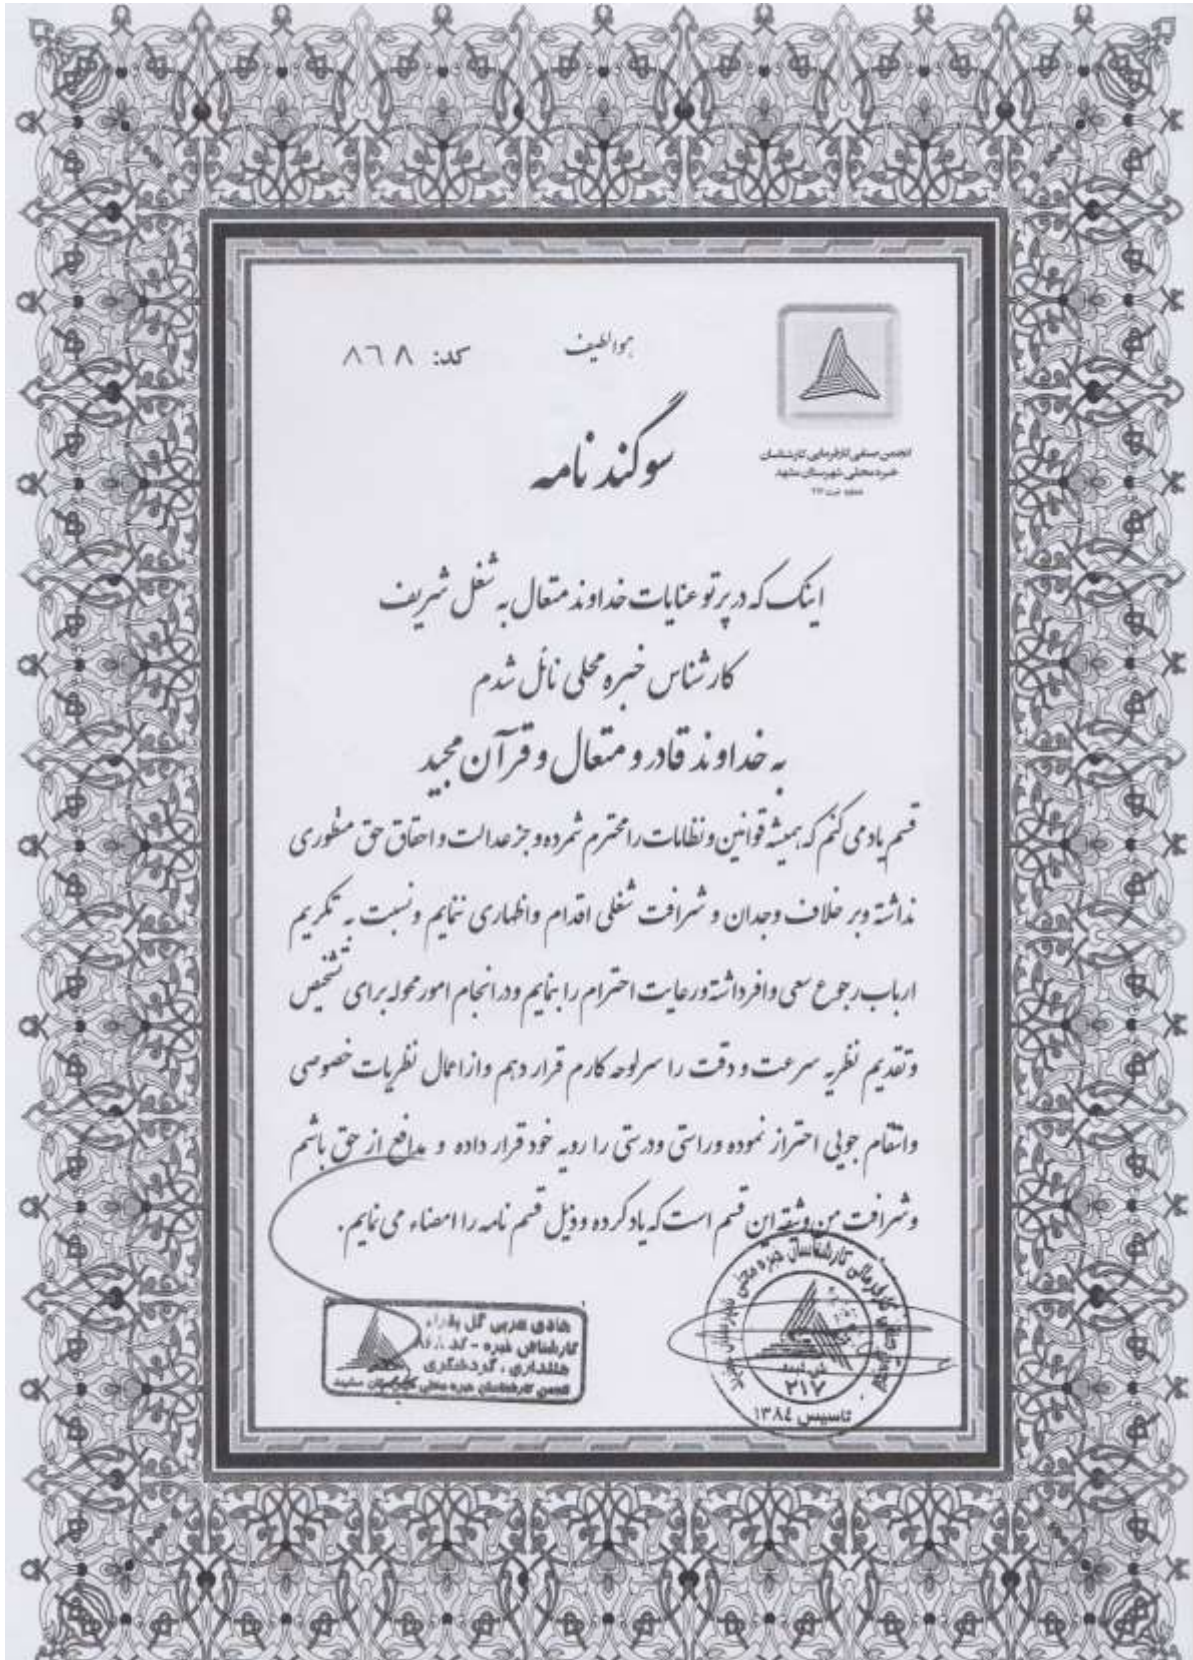 هواللطیف
کد: ۸۶۸
انجمن صنفی کارفرمایی کارشناسان
خبره محلی شهرستان مشهد
شماره ثبت ۲۱۷
سوگند نامه
اینک که در پرتو عنایات خداوند متعال به شغل شریف
کارشناس خبره محلی نائل شدم
به خداوند قادر و متعال و قرآن مجید
قسم یاد می کنم که همیشه قوانین و نظامات را محترم شمرده و جز عدالت و احقاق حق منظوری
نداشته و بر خلاف وجدان و شرافت شغلی اقدام و اظهاری ننمایم و نسبت به تکریم
ارباب رجوع سعی وافر داشته و رعایت احترام را بنمایم و در انجام امور محوله برای تشخیص
و تقدیم نظریه سرعت و دقت را سرلوحه کارم قرار دهم و از اعمال نظریات خصوصی
و انتقام جویی احتراز نموده و راستی و درستی را رویه خود قرار داده و مدافع از حق باشم
و شرافت من وثیقه این قسم است که یاد کرده و ذیل قسم نامه را امضاء می نمایم.
هادی عربی گل
کارشناس خبره - کد ۸۶۸
هتلداری ، گردشگری
انجمن کارشناسان خبره محلی شهرستان مشهد
انجمن صنفی کارفرمائی کارشناسان خبره محلی شهرستان مشهد
۲۱۷
تاسیس ۱۳۸۴